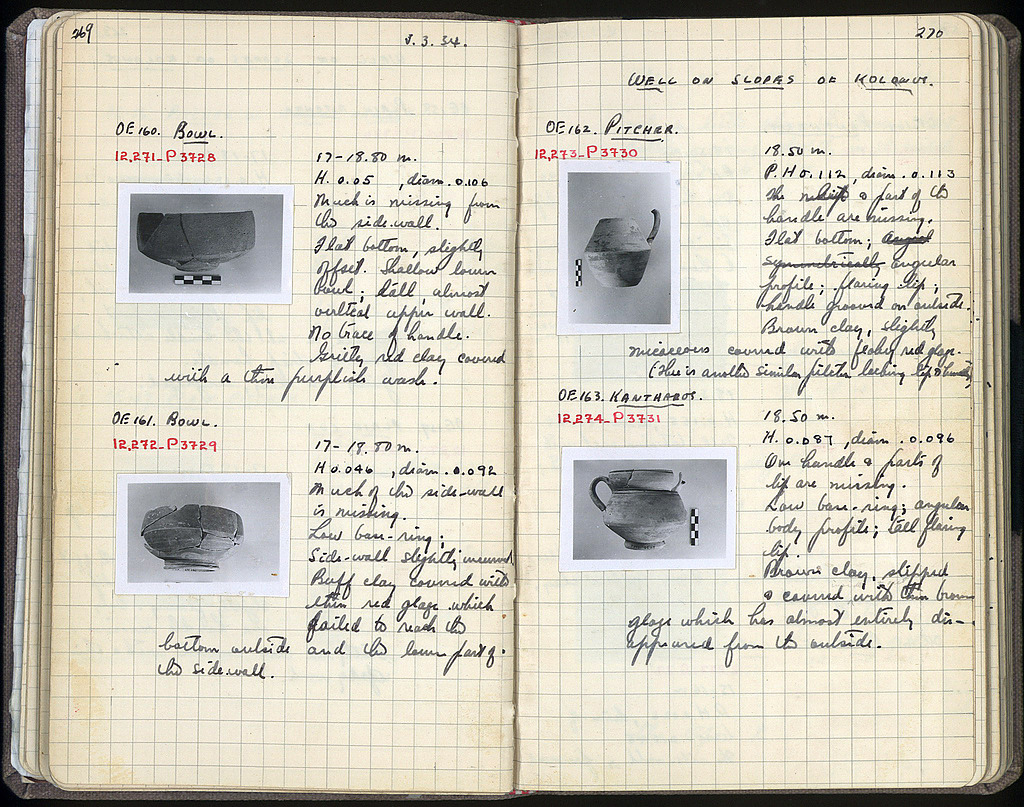 269
8.3.34.
OE 160. BOWL.
12,271-P3728
17-18.80 m.
H. 0.05 , diam. 0.106
Much is missing from
the side-wall.
Flat bottom, slightly
offset. Shallow lower
bowl; tall, almost
vertical upper wall.
No trace of handle.
Gritty red clay covered
with a thin purplish wash.
OE 161. BOWL.
12,272-P3729
17-18.80 m.
H 0.046 , diam. 0.092
Much of the side-wall
is missing.
Low base-ring;
Side-wall slightly incurved
Buff clay covered with
thin red glaze which
failed to reach the
bottom outside and the lower part of
the side-wall.
270
WELL ON SLOPES OF KOLONOS.
OE 162. PITCHER.
12,273-P3730
18.50 m.
P.H 0.112, diam. 0.113
The & part of the
handle are missing.
Flat bottom;
symmetrically angular
profile; flaring lip;
handle grooved on outside.
Brown clay, slightly
micaceous covered with flaky red glaze.
(There is another similar pitcher lacking lip &
OE 163. KANTHAROS.
12,274-P3731
18.50 m.
H. 0.087 , diam. 0.096
One handle & parts of
lip are missing.
Low base-ring; angular
body profile; tall flaring
lip.
Brown clay, slipped
& covered with thin brown
glaze which has almost entirely dis-
appeared from the outside.